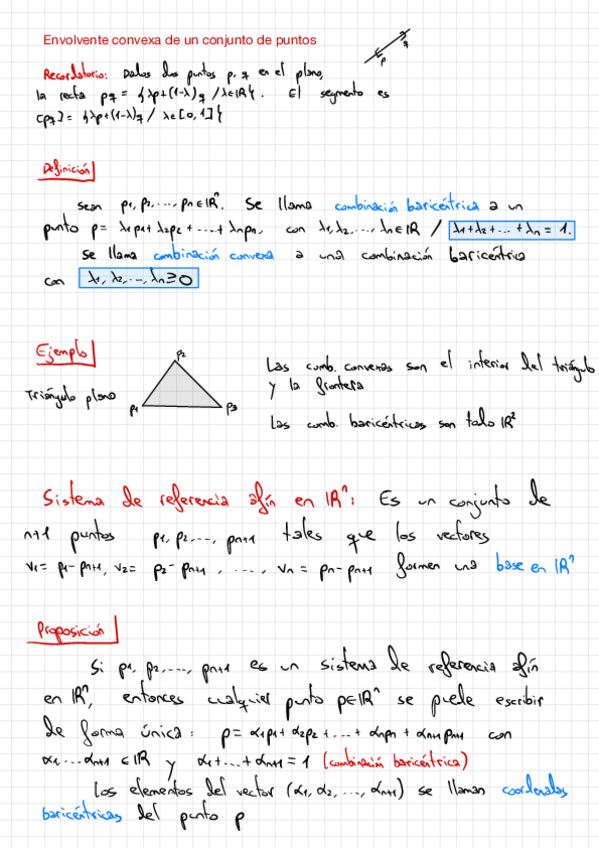 Envolvente convexa de un conjunto de puntos
p q
Recordatorio: Dados dos puntos p, q en el plano,
la recta pq = {λp+(1-λ)q / λ∈ℝ}. El segmento es
[pq] = {λp+(1-λ)q / λ∈[0,1]}
Definición
Sean p₁, p₂, ..., pn∈ℝⁿ. Se llama combinación baricéntrica a un
punto p= λ₁p₁+λ₂p₂+....+λnpn, con λ₁,λ₂,..., λn∈ℝ / λ₁+λ₂+...+λn = 1.
Se llama combinación convexa a una combinación baricéntrica
con λ₁, λ₂, ..., λn≥0
Ejemplo
Triángulo plano
p₂
p₁ p₃
Las comb. convexas son el interior del triángulo
y la frontera
Las comb. baricéntricas son todo ℝ²
Sistema de referencia afín en ℝⁿ: Es un conjunto de
n+1 puntos p₁, p₂,..., pn+1 tales que los vectores
v₁= p₁-pn+1, v₂= p₂-pn+1, ...., vn = pn-pn+1 formen una base en ℝⁿ
Proposición
Si p₁, p₂,...., pn+1 es un sistema de referencia afín
en ℝⁿ, entonces cualquier punto p∈ℝⁿ se puede escribir
de forma única: p= α₁p₁+α₂p₂+...+αnpn+αn+1pn+1 con
α₁...αn+1 ∈ℝ y α₁+...+αn+1 = 1 (combinación baricéntrica)
Los elementos del vector (α₁, α₂, ..., αn+1) se llaman coordenadas
baricéntricas del punto p